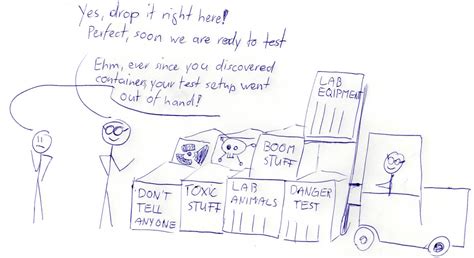 Yes, drop it right here!
Perfect, soon we are ready to test
Ehm, ever since you discovered
containers, your test setup went
out of hand!
LAB
EQIPMENT
BOOM
STUFF
DON'T
TELL
ANYONE
TOXIC
STUFF
LAB
ANIMALS
DANGER
TEST